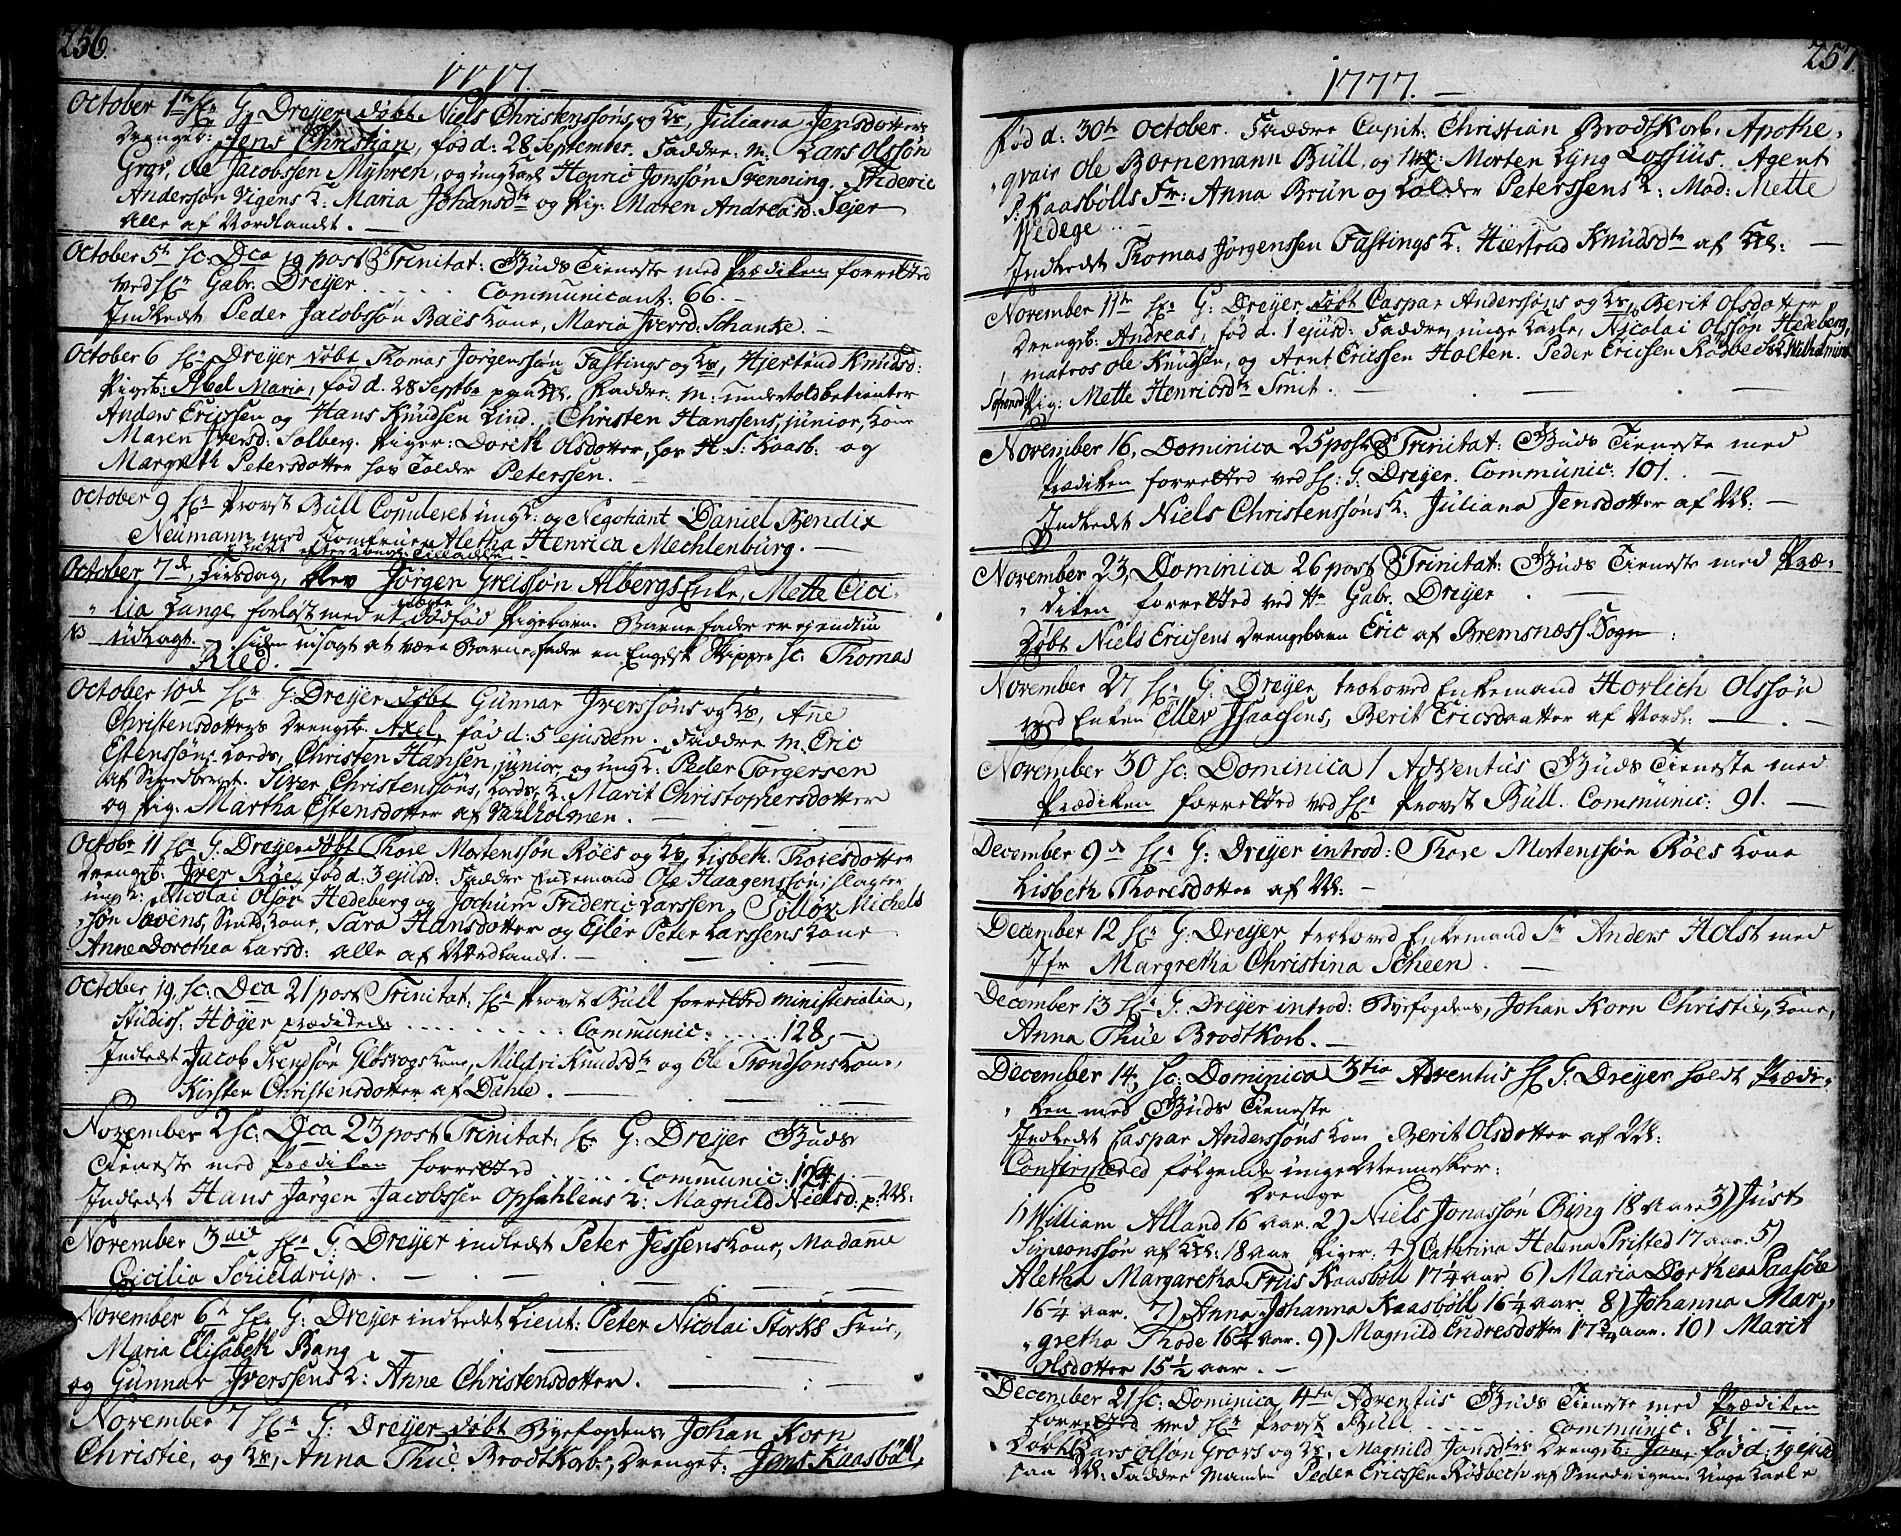 256.
1777. —
October 1te Hr G. Dreÿer döbt Niels Christenssöns og Hs. Juliana Jensdotters
Drengeb: Jens Christian, föd d: 28 September. Faddre: m. Lars Olssön
Graf, Ole Jacobssen Mÿhren, og ung Karl Henric Jonssön Svenning. Frideric
Anderssön Vigens K: Maria Johansdtr og Pig: Maren Andreasd: Fejer
Alle af Nordlandet. —
October 5te sc. Dca 19 post Trinitat: Guds Tieneste med Prædiken forretted
ved Hr Gabr. Dreÿer . . . . . Communicant: 66. —
Indledt Peder Jacobssön Baës Kone, Maria Iversd. Schanke. —
October 6 Hr Dreÿer döbt Thomas Jörgenssön Fastings og Hs, Hjertrud Knudsd:
Pigeb: Abel Maria, föd d. 28 Septbr paa Faddre. m: underToldbetienter
Anders Ericssen og Hans Knudsen Lind. Christen Hanssens, junior, Kone
Maren Iversd: Solberg. Piger: Doreth Olsdotter, hos H: S: Kaasb: og
Margreth Petersdotter hos Tolder Peterssen. —
October 9 Hr Provst Büll Copuleret ungk: og Negotiant Daniel Bendix
Neümann med Jomfrue Aletha Henrica Mechlenbürg. —
October 7de, Tirsdag, blev Jörgen Greissön Albergs Enke, Mette Cici-
lia Lange forlöst med et dödföd Pigebarn. Barnefader er ejendnu
udlagt. — siden udsagt at være Barnefader en Engelsk Skipper sc. Thomas
Ried. —
October 10de Hr G: Dreÿer döbt Günnar Iverssöns og Hs, Añe
Christensdotters Drengeb: Axel, föd d: 5 ejusdem. Faddre m. Eric
Estenssön Lords, Christen Hansen, junior, og ungk: Peder Torgersen
af Strandvigt. Siver Christenssöns, Lords, K. Marit Christophersdotter
og Pig. Martha Estensdotter af Valholmen. —
Octobr 11 Hr G. Dreÿer döbt Thore Mortenssön Röes og Hs, Lisbeth Thoresdotter
Drengeb: Iver Röe, föd d. 3 ejusd: Faddre Enkemand Ole Haagenssön, slagter
ungk: Nicolai Olsön Hedeberg og Jochum Frideric Larssen, Sollöv Michels
sön Svens, Smeds, Kone, Sara Hansdotter og Ejler Peter Larssens Kone
Anne Dorothea Larsd: alle af Nordlandet. —
October 19. sc: Dca 21 post Trinitat: Hr Provst Büll forretted ministerialia,
Studiss: Höÿer prædikede . . . . . . . . Communic: . . . . 128, —
Indledt Jacob Trendsön Glösvogs Kone, Mildri Knudsdtr og Ole Trondsöns Kone,
Kirsten Christensdotter af Dahle. —
November 2 sc: Dca 23 post Trinitat: Hr G: Dreÿer Guds
Tieneste med Prædiken forretted . . . . . Communic: 124. —
Indledt Hans Jörgen Jacobssen Opsahlens K: Magnild Nielsd. p:
November 3die Hr G: Dreÿer indledt Peter Jessens Kone, Madame
Cicilia Schieldrup. —
November 6te Hr G: Dreÿer indledet Lieut: Peter Nicolai Storks Frue,
Maria Elisabeth Bang —
og Günnar Iverssens K: Anne Christensdotter. —
November 7 Hr G: Dreÿer döbt Byefogdens, Johan Korn
Christie, og Hs, Anna Thüe Brodtkorbs, Drengeb: Jens Kaasböll,
257.
1777. —
föd d. 30te October. Faddre Capit: Christian Brodtkorb. Apothe-
qvair Ole Bornemann Büll, og Morten Lÿng Lossius. Agent
P. Kaasbölls Fr: Anna Brün og Tolder Peterssens K: Mad: Mette
Wedege. . —
Indledt Thomas Jörgenssen Fastings K: Hiertrud Knüdsdtr af —
November 11te Hr G: Dreÿer döbt Caspar Anderssöns og Hs, Berit Olsdotter
Drengeb: Andreas, föd d. 1 ejusd: Faddre, unge Karle, Nicolai Olssön Hedeberg,
matros Ole Knudsen, og Arnt Ericssen Holten. Peder Ericsen Rödbech Wilhelmina
Pig: Mette Henricsdtr Smit. —
November 16, Dominica 25 post Trinitat: Guds Tieneste med
Prædiken forretted ved Hr: G: Dreÿer. Communic: 101. —
Indledt Niels Christenssöns K. Juliana Jensdotter af —
November 23, Dominica 26 post Trinitat: Guds Tieneste med Præ-
diken forretted ved Hr Gabr. Dreÿer. —
Döbt Niels Ericsens Drengebarn Eric af Bremsness Sogn.
November 27 Hr G: Dreÿer, trolovd Enkemand Horlich Olssön
med Enken Ellev Isaacsens, Berit Ericsdaatter af Nordl: —
November 30 sc: Dominica 1 Adventus Guds Tieneste med
Prædiken forretted ved Hr Provst Büll. Communic: 91. —
December 9de Hr G: Dreÿer introd: Thore Mortenssön Röes Kone
Lisbeth Thoresdotter af —
December 12 Hr G: Dreÿer trolovd Enkemand Sr Anders Holst med
Jfr Margretha Christina Scheen. —
December 13 Hr G. Dreÿer introd: Byefogdens, Johan Korn Christie, Kone,
Anna Thüe Brodtkorb. —
December 14, sc: Dominica 3tia Adventus Hr G: Dreÿer holdt Prædi-
ken med Guds Tieneste
Indledt Caspar Anderssöns Kone Berit Olsdotter af
Confirmered fölgende unge Mennesker:
Drenge
1) William Alland 16 aar. 2) Niels Jonassön Bing 18 aar 3) Just
Simeonssön af 18 aar Piger: 4) Cathrina Helena Pristed 17 aar. 5)
Aletha Margaretha Friis Kaasböll 17¼ aar 6) Maria Dorthea Paasche
16¼ aar. 7) Anna Johanna Kaasböll 16¼ aar. 8) Johanna Mar-
gretha Thode 16¼ aar. 9) Magnild Endresdotter 17¾ aar. 10) Marit
Olsdotter 15½ aar. —
December 21 sc: Dominica 4ta Adventus Guds Tieneste med Prædiken
forretted ved Hr Provst Büll . . . . . Communic: 81. —
Döbt Lars Olsön Grovs og Hs, Magnild Jonsdtrs Drengeb: Jon, föd d. 19 ejusd
paa Faddre Manden Peder Ericssen Rödbech af Smedvigen. Unge Karle